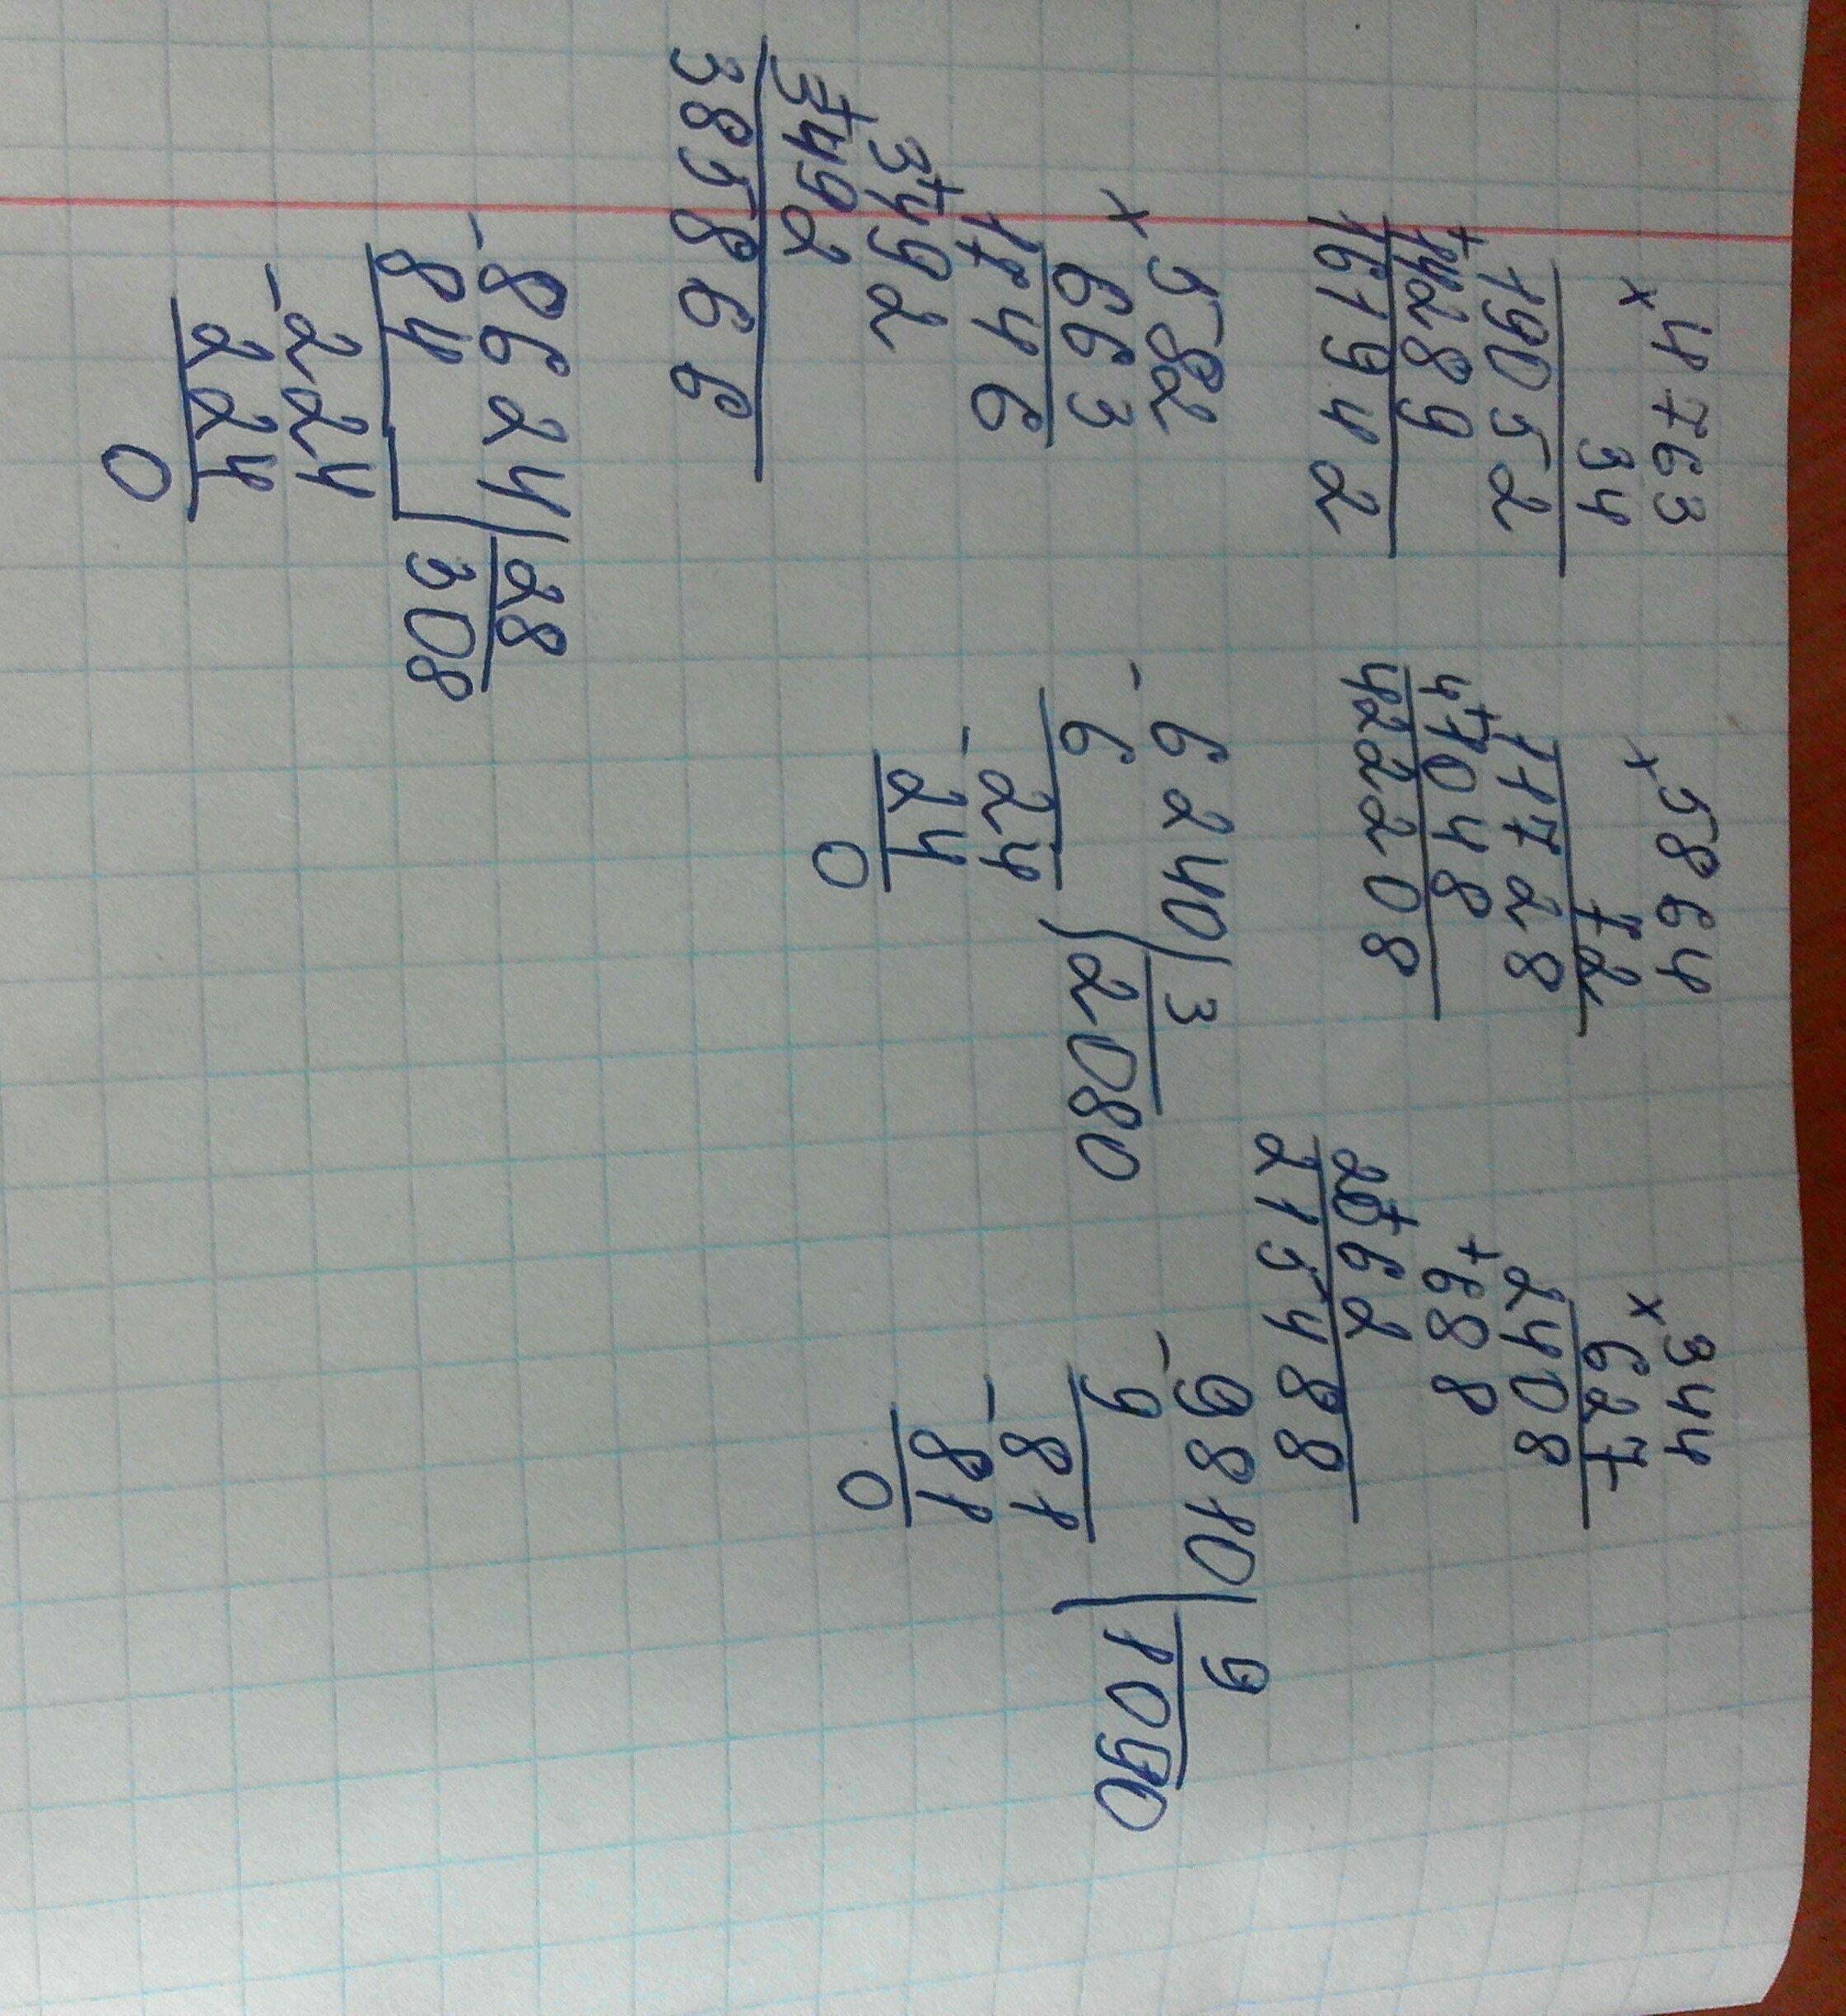 × 4763
34
19052
+ 14289
161942
× 5864
72
11728
+ 41048
422208
× 344
627
2408
+ 688
+ 2062
215488
× 582
663
1746
+ 3492
+ 3492
385866
- 6240 | 3
6 2080
- 24
24
0
- 9810 | 9
9 1090
- 81
81
0
- 8624 | 28
84 308
- 224
224
0